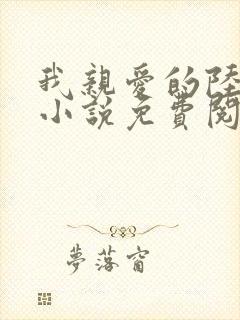 我親愛的陸
小說免費閱
夢落窗